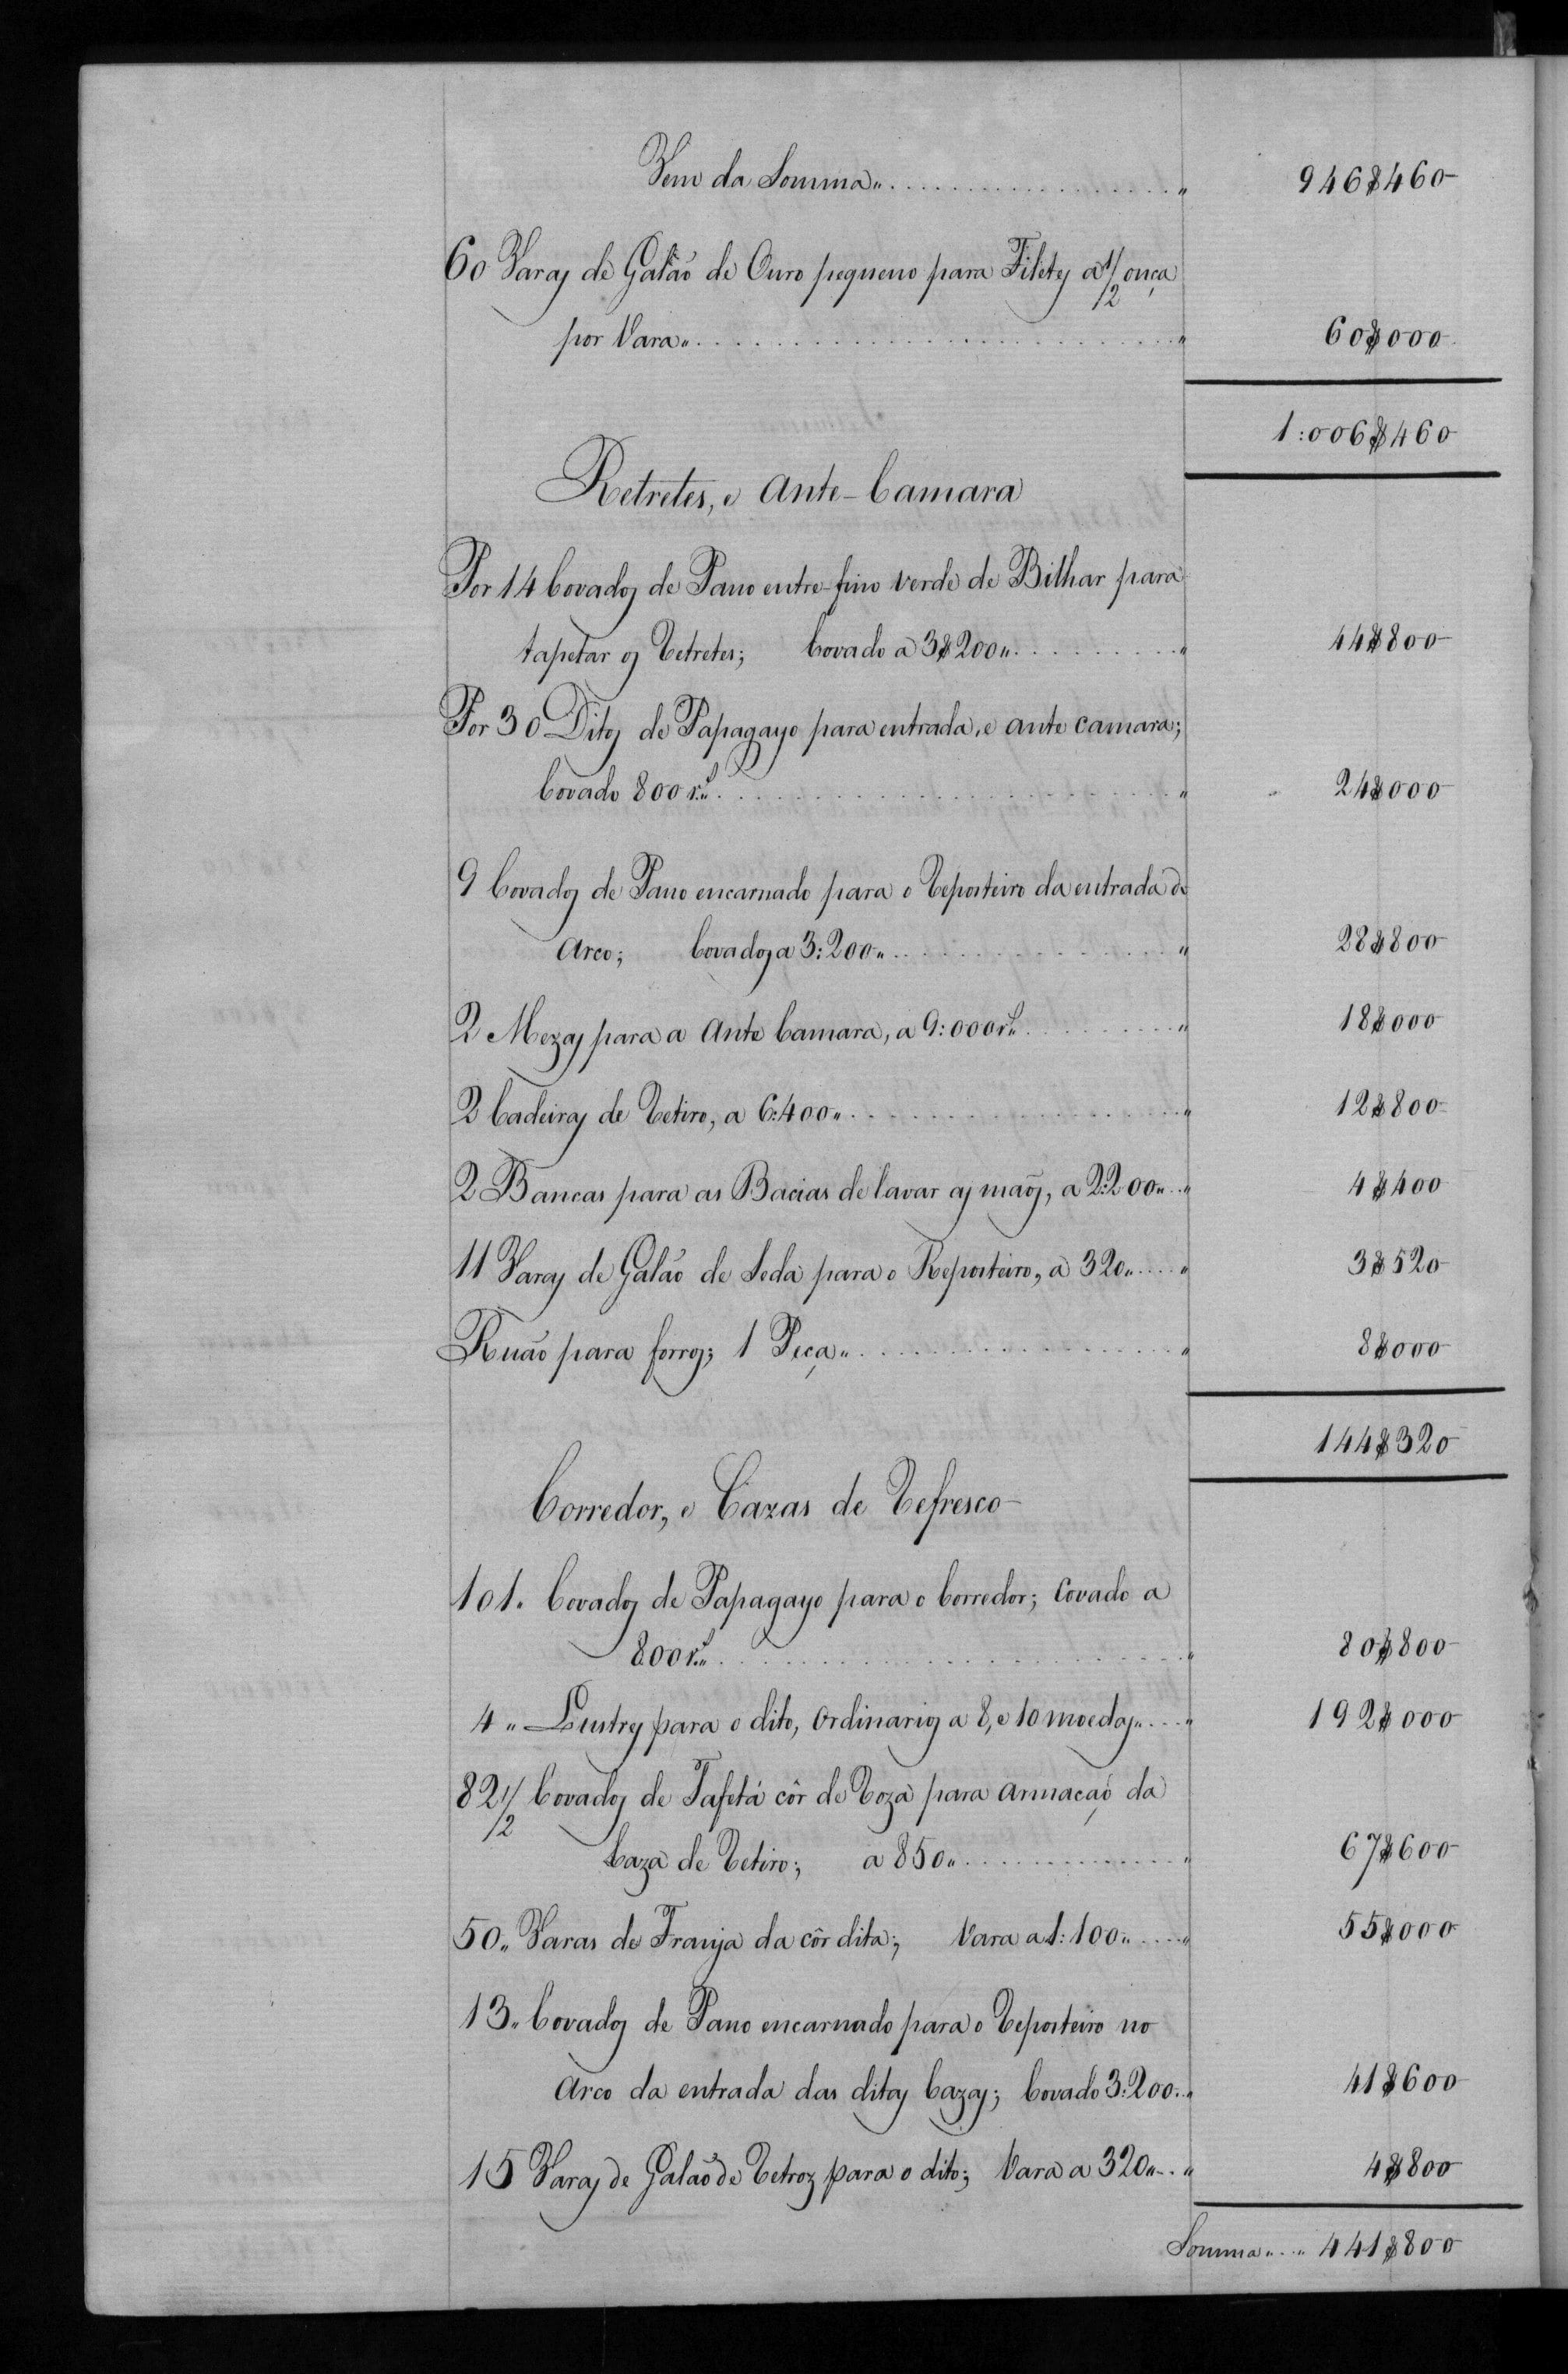 Vem da Somma„ . . . . „ 946$460
60 Varas de Galão de Ouro pequeno para Filetes a 1/2 onça
por Vara„ . . . . „ 60$000
1:006$460
Retretes, e Ante-Camara
Por 14 Covados de Pano entre-fino verde de Bilhar para
tapetar os Retretes; Covado a 3$200„ . . . . „ 44$800
Por 30 Ditos de Papagayo para entrada, e ante camara;
Covado 800 rs„ . . . . „ 24$000
9 Covados de Pano encarnado para o Reposteiro da entrada do
Arco; Covados a 3:200„ . . . . „ 28$800
2 Mezas para a Ante Camara, a 9:000 rs„ . . . . „ 18$000
2 Cadeiras de Retiro, a 6:400„ . . . . „ 12$800
2 Bancas para as Bacias de lavar as maõs, a 2:200„ . . „ 4$400
11 Varas de Galão de Seda para o Reposteiro, a 320„ . . . „ 3$520
Ruão para forros; 1 Peça„ . . . . „ 8$000
144$320
Corredor, e Cazas de Refresco
101„ Covados de Papagayo para o Corredor; Covado a
800 rs„ . . . . „ 80$800
4„ Lustres para o dito, Ordinarios a 8, e 10 moedas„ . . . „ 192$000
82 1/2 Covados de Tafetá côr de Roza para armaçaõ da
Caza de Retiro; a 850„ . . . . „ 67$600
50„ Varas de Franja da côr dita; Vara a 1:100„ . . . „ 55$000
13„ Covados de Pano encarnado para o Reposteiro no
Arco da entrada das ditas Cazas; Covado 3:200„ . „ 41$600
15 Varas de Galaõ de Retroz para o dito; Vara a 320„ . . „ 4$800
Somma„ . . „ 441$800